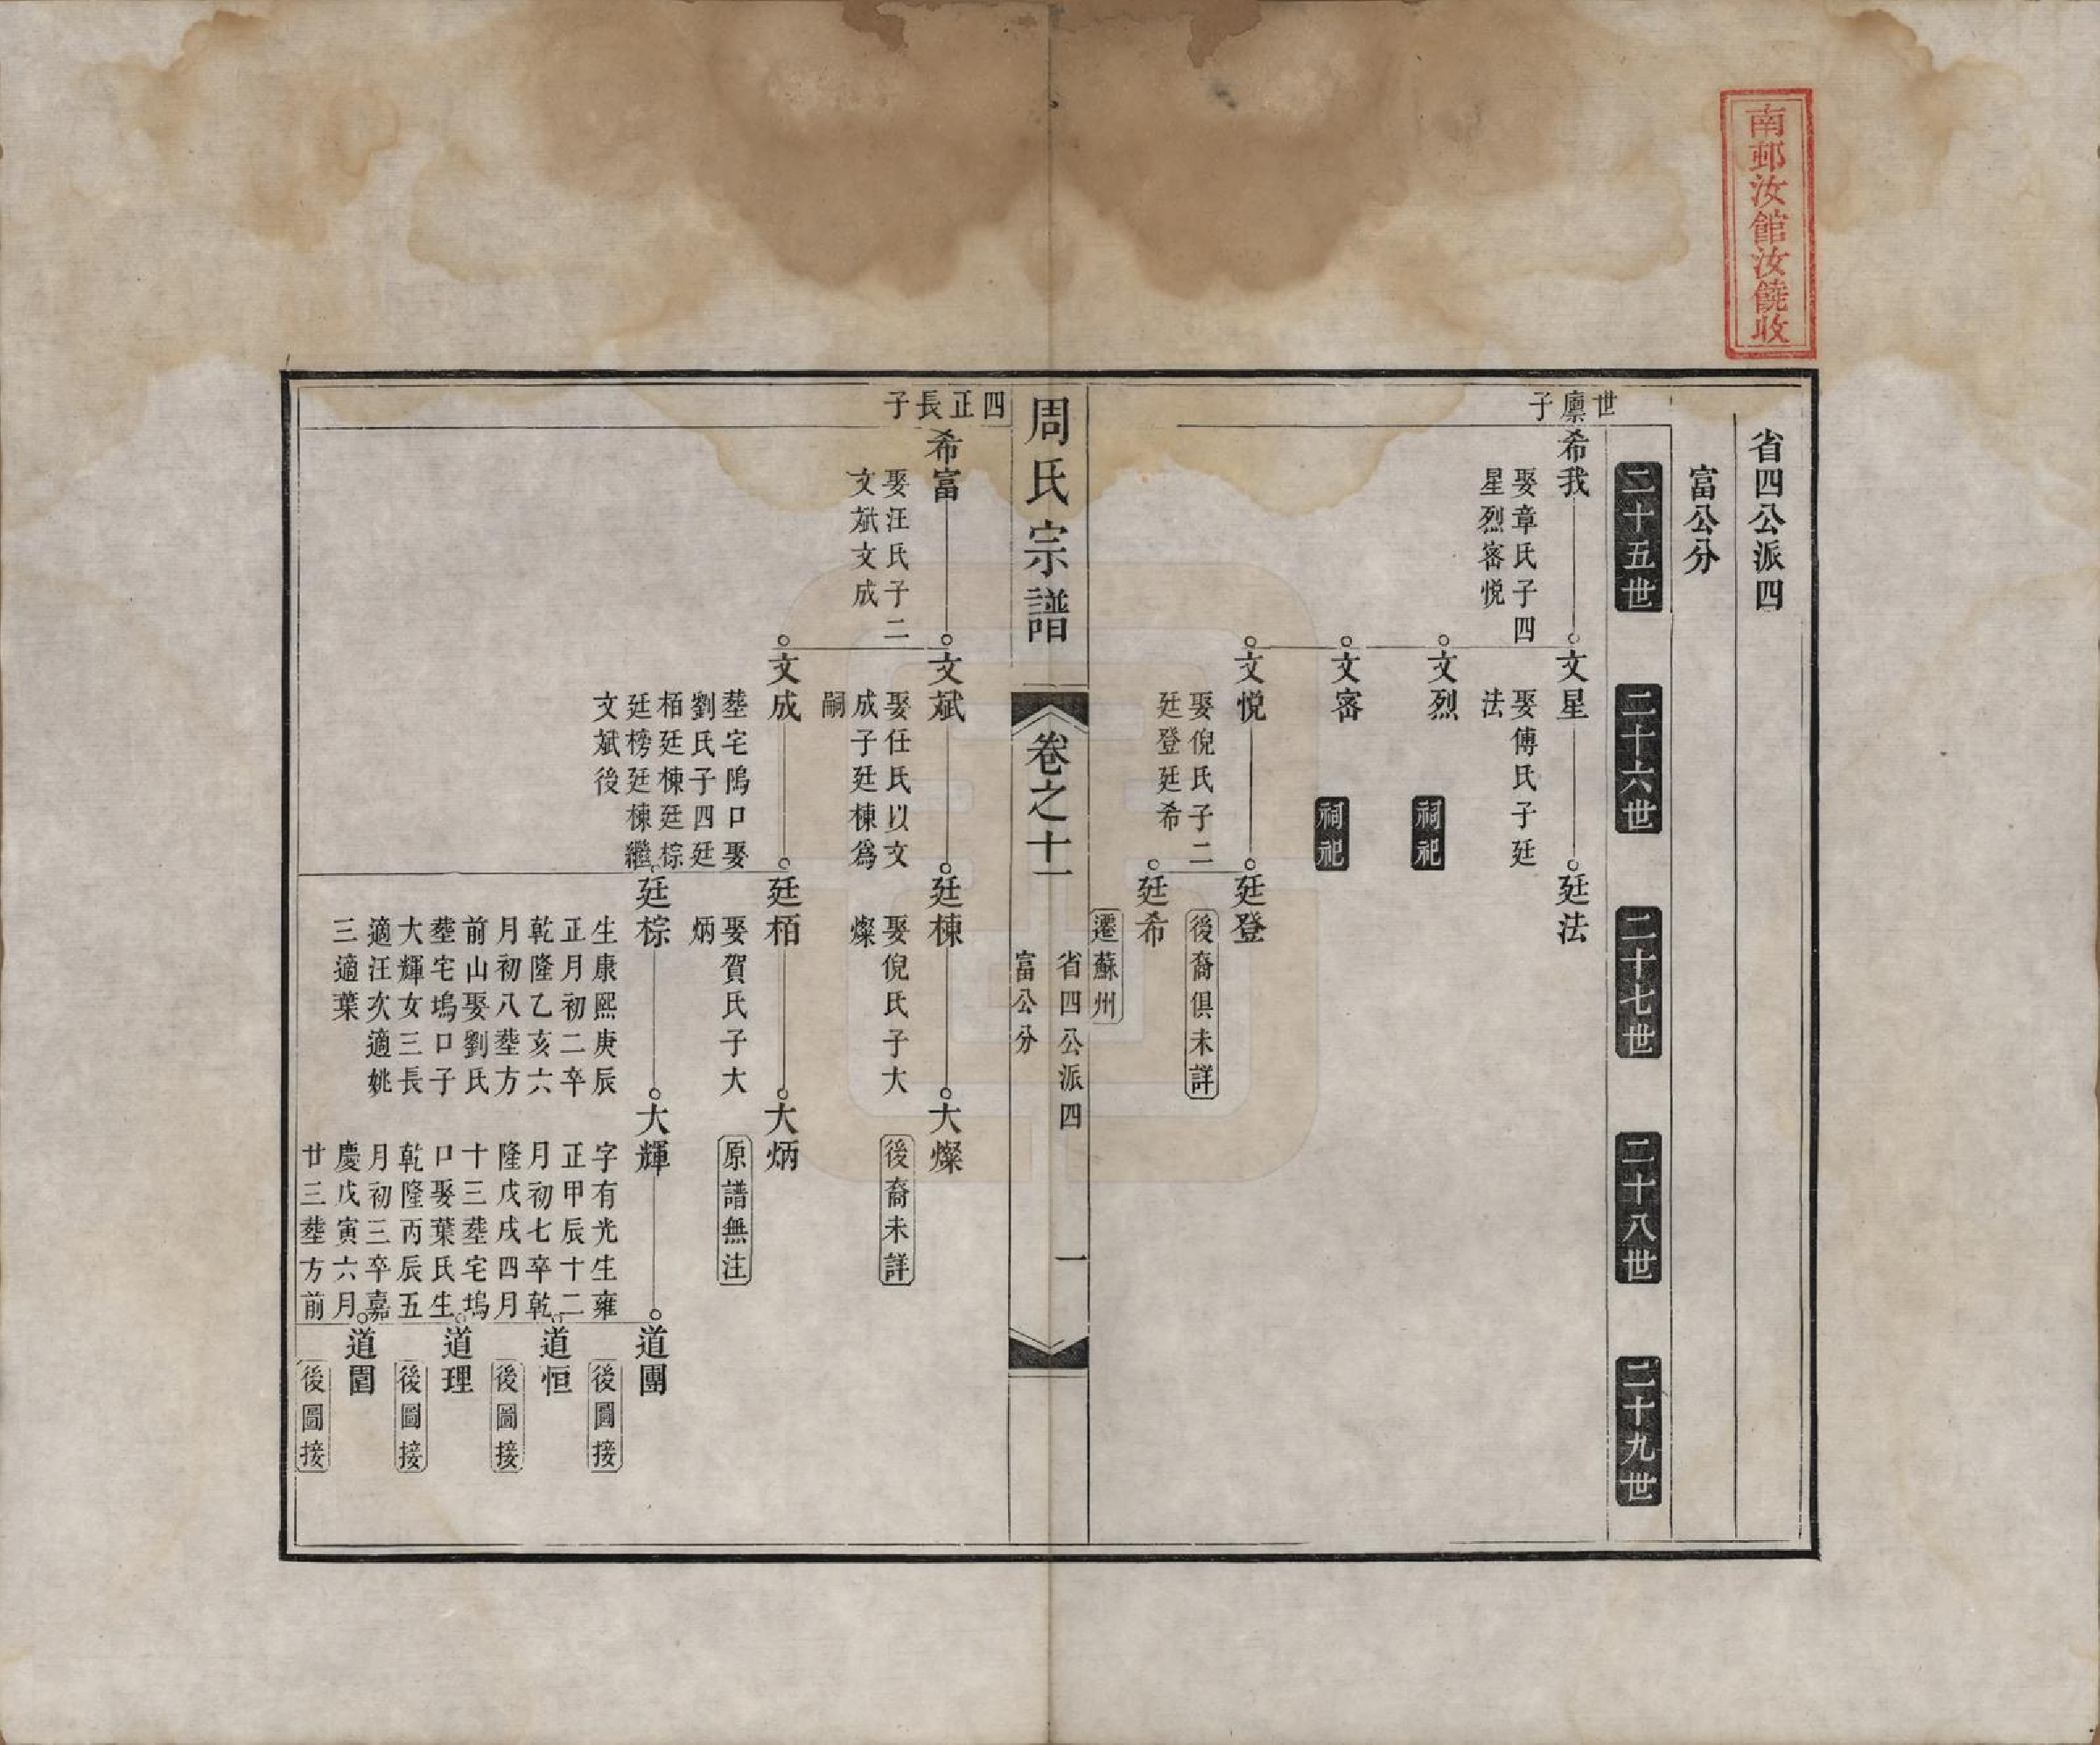 南邨汝館汝饒收
省四公派四
富公分
二十五世
二十六世
二十七世
二十八世
二十九世
世廪子
希我
娶章氏子四
星烈審悦
文星
娶傅氏子廷
法
廷法
文烈
祠祀
文審
祠祀
文悦
娶倪氏子二
廷登廷希
廷登
後裔俱未詳
廷希
遷蘇州
周氏宗譜
卷之十一
省四公派四
富公分
一
四正長子
希富
娶汪氏子二
文斌文成
文斌
娶任氏以文
成子廷棟爲
嗣
廷棟
娶倪氏子大
燦
大燦
後裔未詳
文成
塟宅隖口娶
劉氏子四廷
栢廷棟廷棕
廷榜廷棟繼
文斌後
廷栢
娶賀氏子大
炳
大炳
原譜無注
廷棕
生康熙庚辰
正月初二卒
乾隆乙亥六
月初八塟方
前山娶劉氏
塟宅塢口子
大輝女三長
適汪次適姚
三適葉
大輝
字有光生雍
正甲辰十二
月初七卒乾
隆戊戌四月
十三塟宅塢
口娶葉氏生
乾隆丙辰五
月初三卒嘉
慶戊寅六月
廿三塟方前
道團
後圖接
道恒
後圖接
道理
後圖接
道圍
後圖接